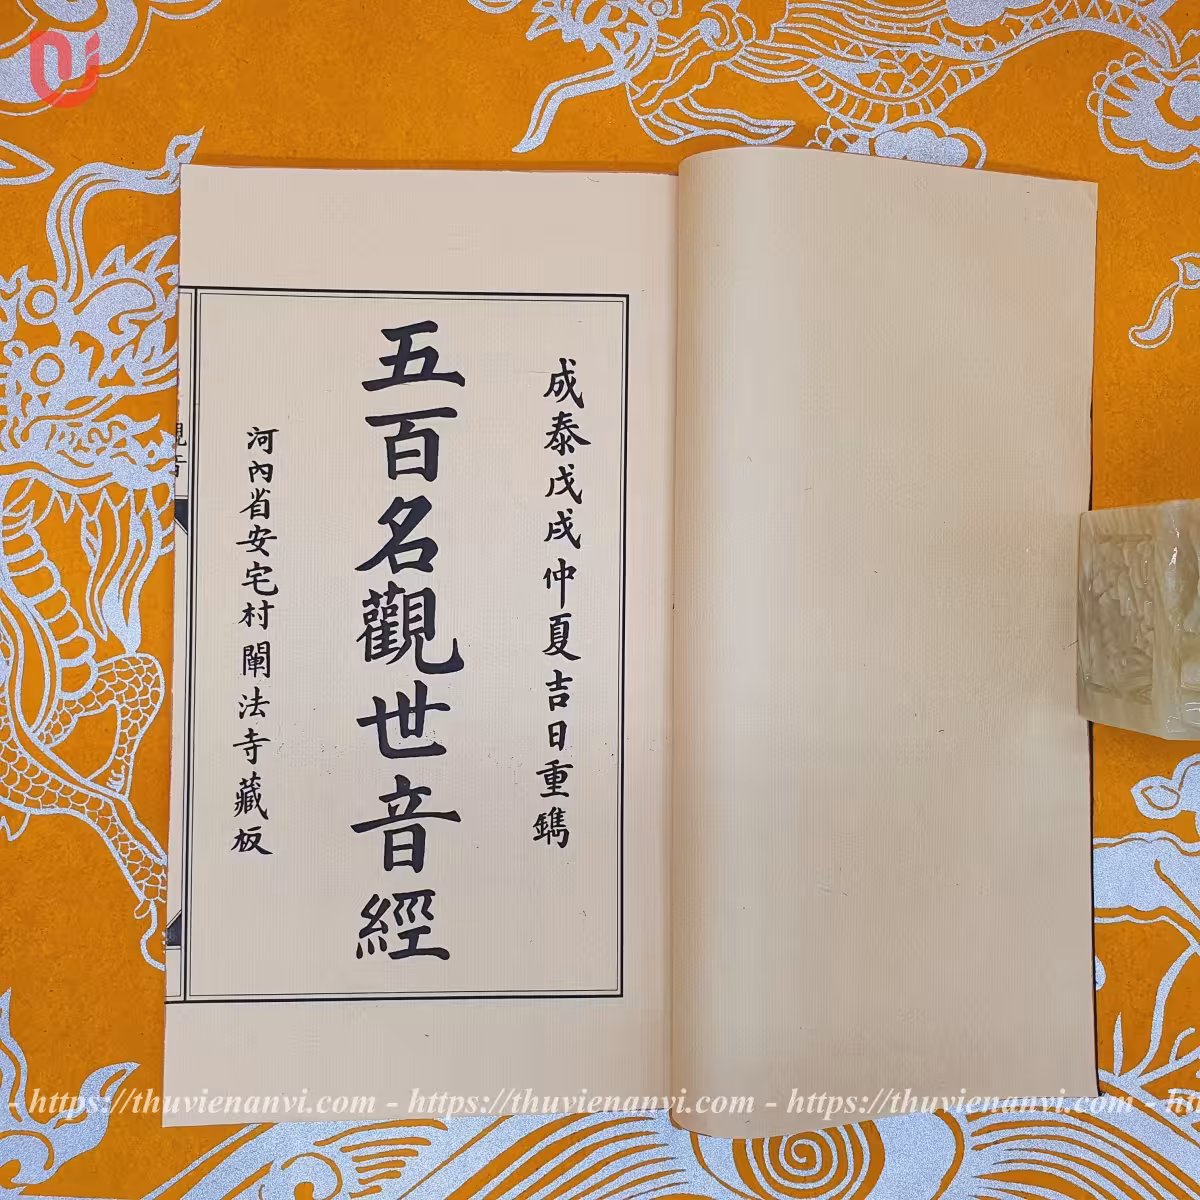 成泰戊戌仲夏吉日重鐫
五百名觀世音經
河內省安宅村闡法寺藏板
觀音
- https://thuvienanvi.com - https://thuvienanvi.com - https://thuvienanvi.com - ht